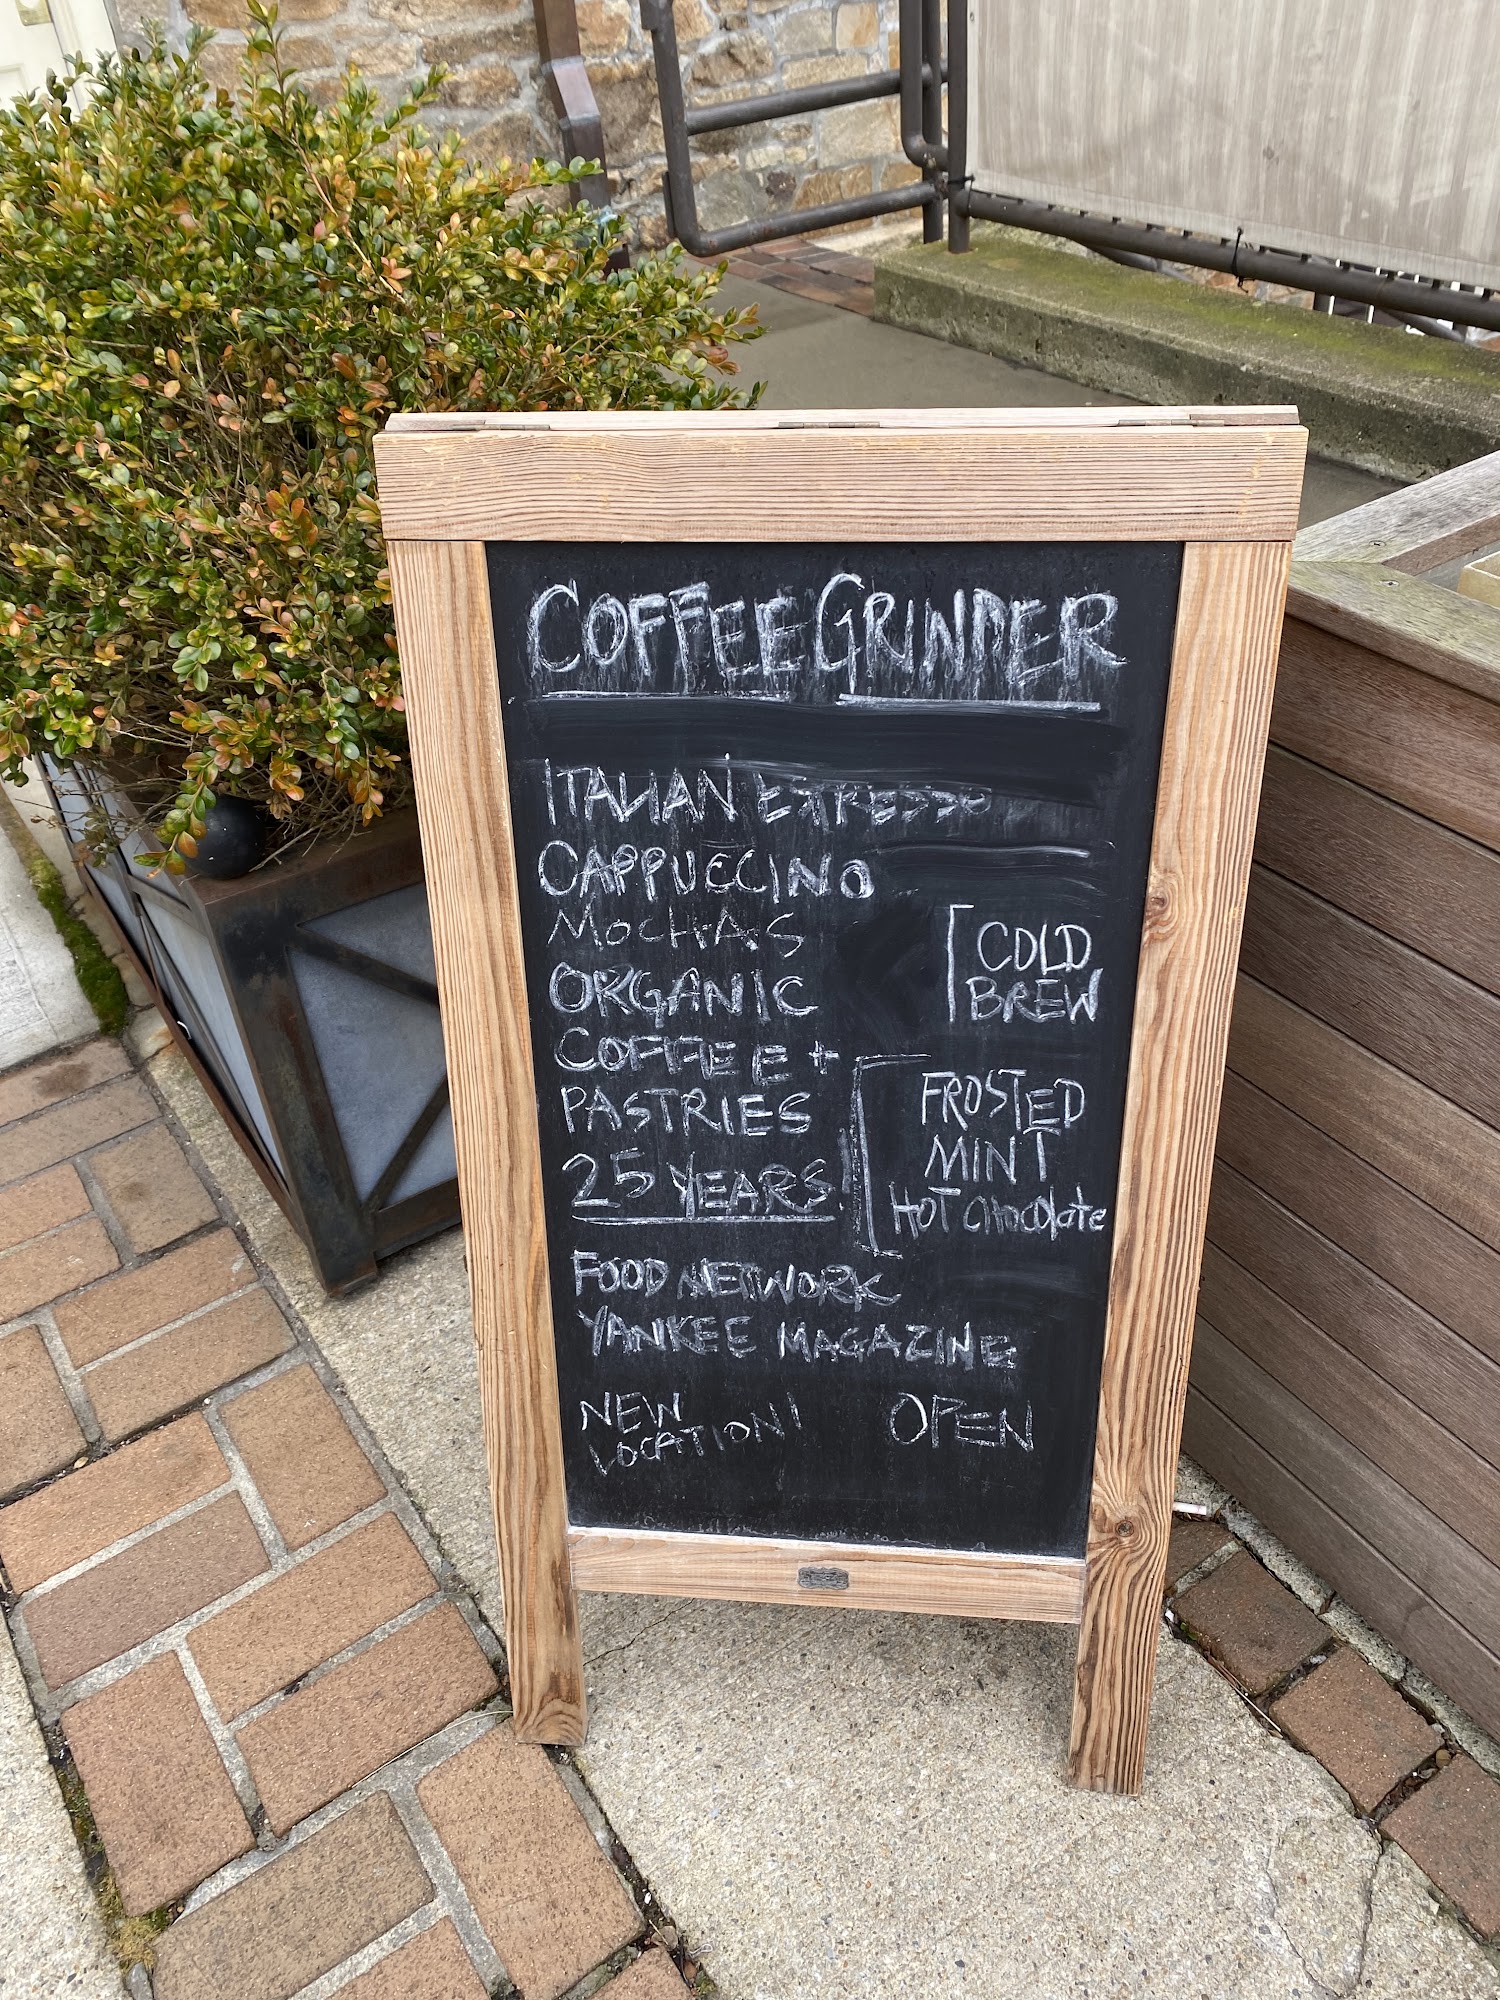 COFFEE GRINDER
ITALIAN EXPRESSO
CAPPUCCINO
MOCHAS
ORGANIC
COFFEE +
PASTRIES
25 YEARS!
COLD
BREW
FROSTED
MINT
HOT chocolate
FOOD NETWORK
YANKEE MAGAZINE
NEW
LOCATION!
OPEN